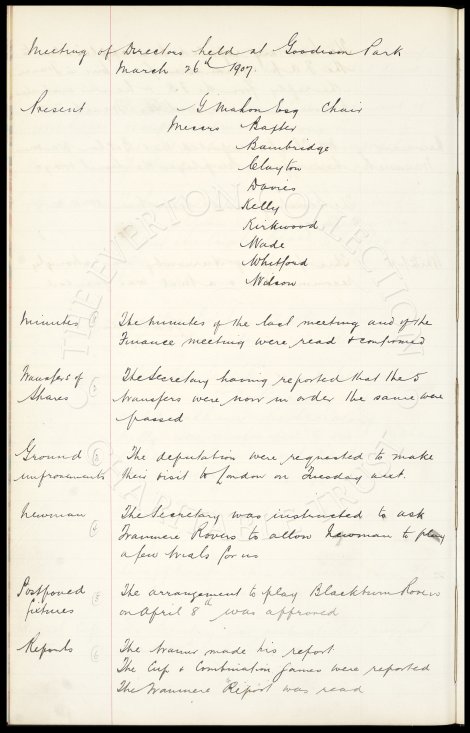 Meeting of Directors held at Goodison Park
March 26th 1907.
Present G Mahon Esq Chair
Messrs Baxter
Bainbridge
Clayton
Davies
Kelly
Kirkwood
Wade
Whitford
Wilson
Minutes The Minutes of the last meeting and of the
Finance meeting were read & confirmed
Transfers of The Secretary having reported that the 5
Shares transfers were now in order the same were
passed
Ground The deputation were requested to make
improvements their visit to London on Tuesday next.
Newman The Secretary was instructed to ask
Tranmere Rovers to allow Newman to play
a few trials for us
Postponed The arrangement to play Blackburn Rovers
fixtures on April 8th was approved
Reports The Trainer made his report
The Cup & Combination games were reported
The Tranmere Report was read
THE EVERTON COLLECTION
CHARITABLE TRUST